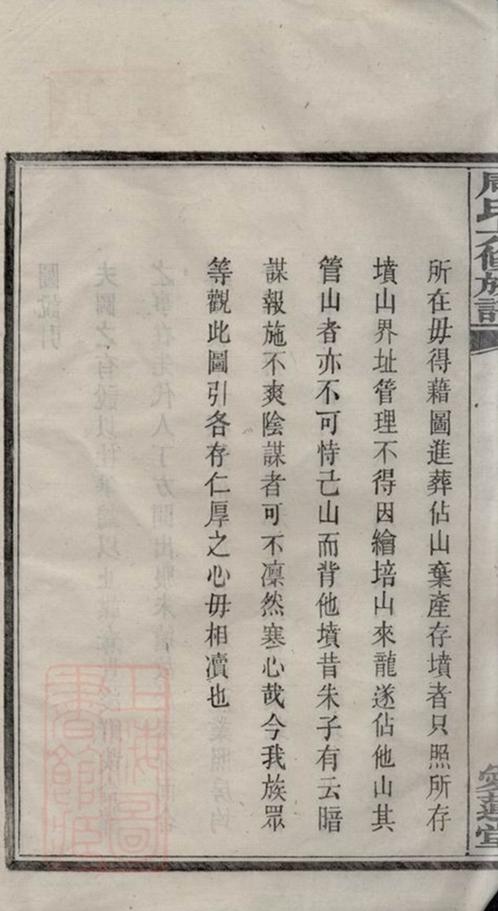 周氏六修族譜
所在毋得藉圖進葬佔山棄產存墳者只照所存
墳山界址管理不得因繪培山來龍遂佔他山其
管山者亦不可恃己山而背他墳昔朱子有云暗
謀報施不爽陰謀者可不凜然寒心哉今我族眾
等觀此圖引各存仁厚之心毋相凟也
愛蓮堂